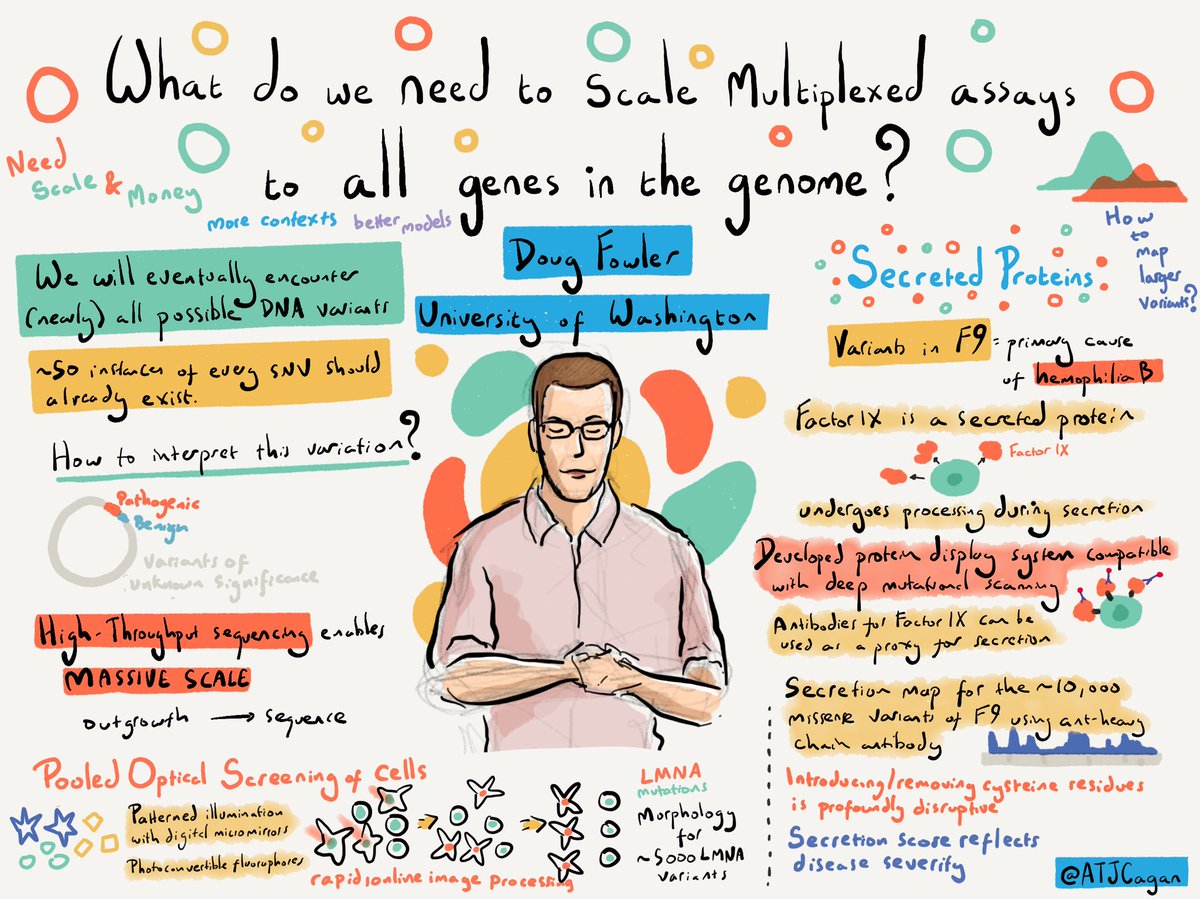 What do we need to Scale Multiplexed assays
to all genes in the genome?
Need
Scale & Money
more contexts better models
Doug Fowler
University of Washington
We will eventually encounter
(nearly) all possible DNA variants
~50 instances of every SNV should
already exist.
How to interpret this variation?
Pathogenic
Benign
Variants of
unknown significance
High-Throughput sequencing enables
MASSIVE SCALE
outgrowth → sequence
Pooled Optical Screening of cells
Patterned illumination
with digital micromirrors
Photoconvertible fluorophores
rapid online image processing
LMNA
mutations
Morphology
for
~5000 LMNA
variants
How
to
map
larger
variants?
Secreted Proteins
Variants in F9 = primary cause
of hemophilia B
Factor IX is a secreted protein
Factor IX
undergoes processing during secretion
Developed protein display system compatible
with deep mutational scanning
Antibodies for Factor IX can be
used as a proxy for secretion
Secretion map for the ~10,000
missense variants of F9 using ant-heavy
chain antibody
Introducing/removing cysteine residues
is profoundly disruptive
Secretion score reflects
disease severity
@ATJCagan